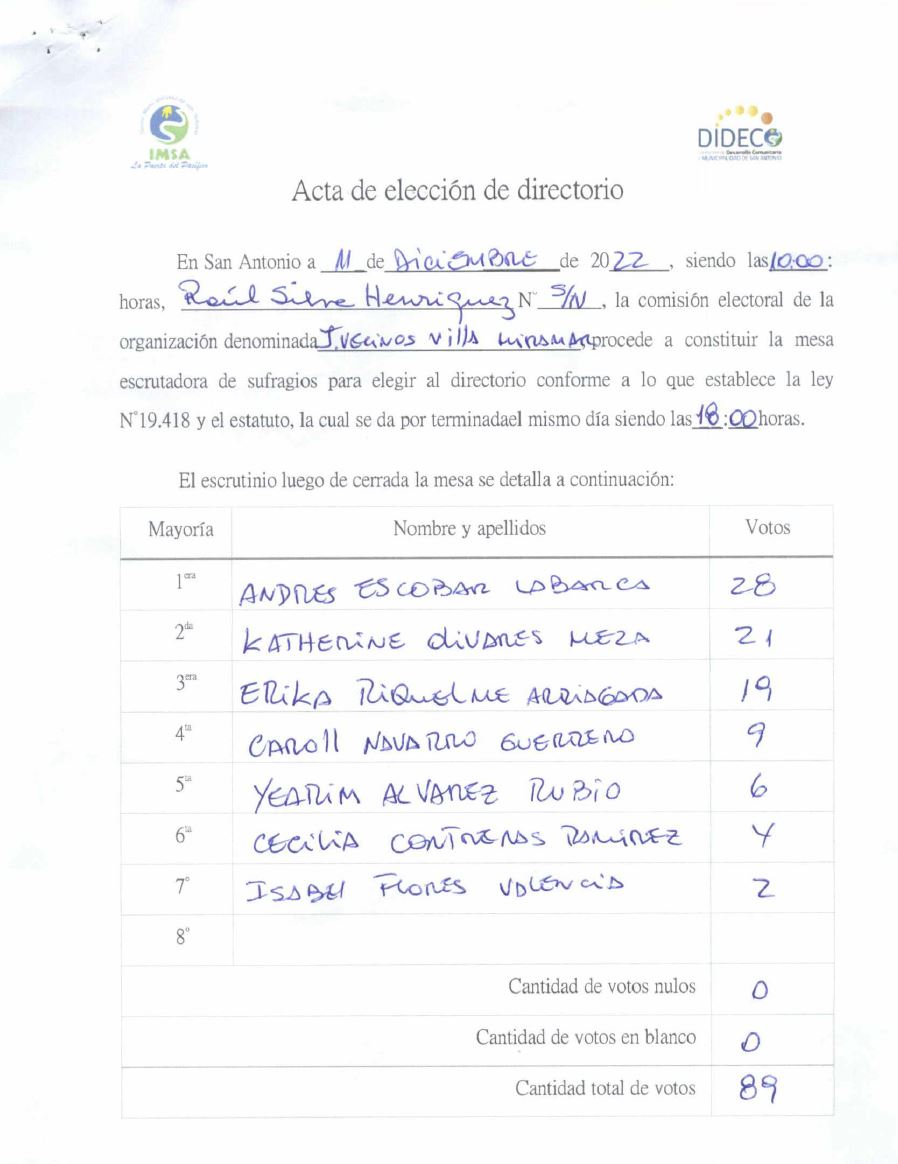 IMSA
La Puerta del Pacífico
DIDECO
Desarrollo Comunitario
I. MUNICIPALIDAD DE SAN ANTONIO
Acta de elección de directorio
En San Antonio a 11 de DiciEMBRE de 2022 , siendo las 10:00:
horas, Raúl Silva Henriquez N° S/N , la comisión electoral de la
organización denominada J.VECiNOS Villa MIRAMAR procede a constituir la mesa
escrutadora de sufragios para elegir al directorio conforme a lo que establece la ley
N°19.418 y el estatuto, la cual se da por terminadael mismo día siendo las 18:00 horas.
El escrutinio luego de cerrada la mesa se detalla a continuación:
Mayoría Nombre y apellidos Votos
1era ANDRES ESCOBAR LABARCA 28
2da KATHERiNE OliVARES MEZA 21
3era ERikA RiQuelME ARRiAGADA 19
4ta CAROll NAVARRO GUERRERO 9
5ta YEARiM ALVAREZ RUBiO 6
6ta CECiLiA CONTRERAS RAMiREZ 4
7° ISABEl FLORES VALENCiA 2
8°
Cantidad de votos nulos 0
Cantidad de votos en blanco 0
Cantidad total de votos 89